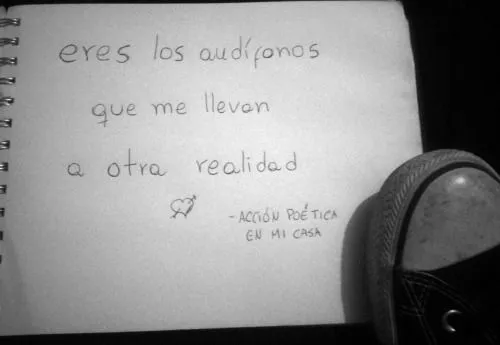 eres los audífonos
que me llevan
a otra realidad
- ACCIÓN POÉTICA
EN MI CASA